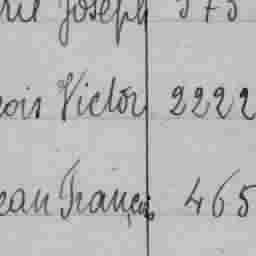 Joseph 373
ois Victor 2222
ean François 465